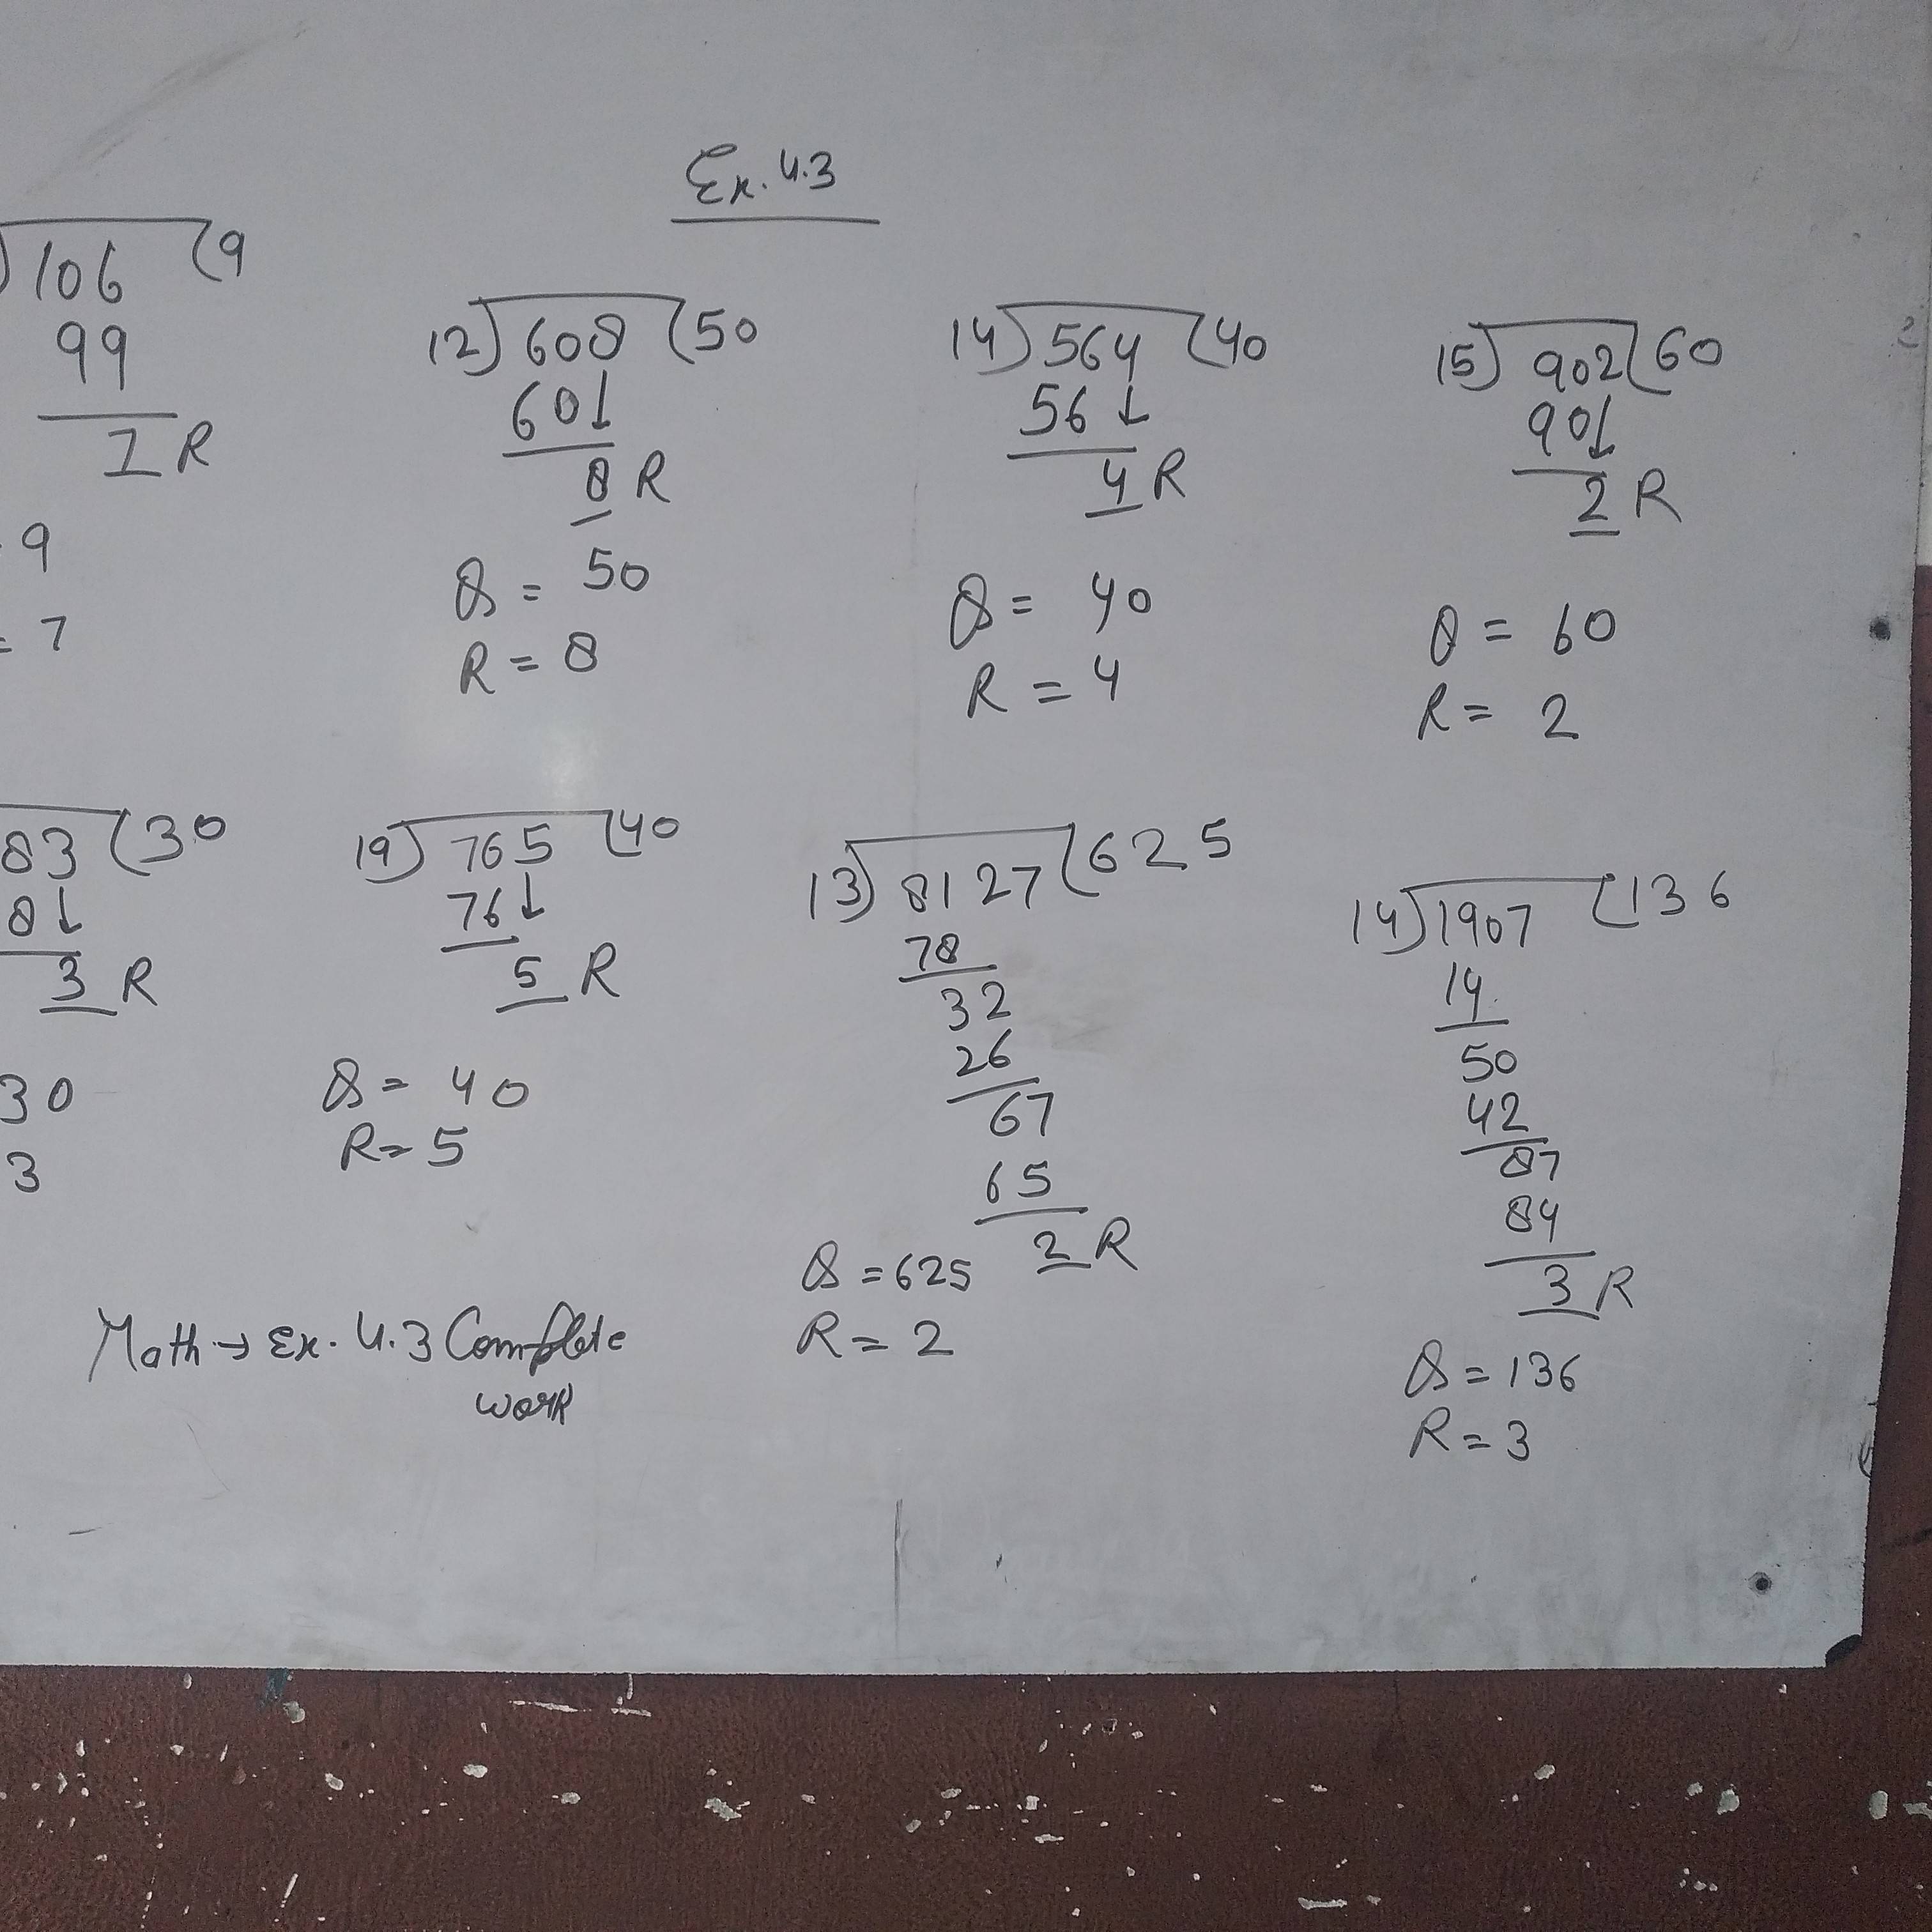 Ex. 4.3
106 (9
99
7 R
9
= 7
12) 608 (50
60↓
8 R
Q = 50
R = 8
14) 564 (40
56 ↓
4 R
Q = 40
R = 4
15) 902 (60
90↓
2 R
Q = 60
R = 2
83 (30
8↓
3 R
30
3
19) 765 (40
76↓
5 R
Q = 40
R = 5
13) 8127 (625
78
32
26
67
65
2 R
Q = 625
R = 2
14) 1907 (136
14
50
42
87
84
3 R
Q = 136
R = 3
Math → Ex. 4.3 Complete
work